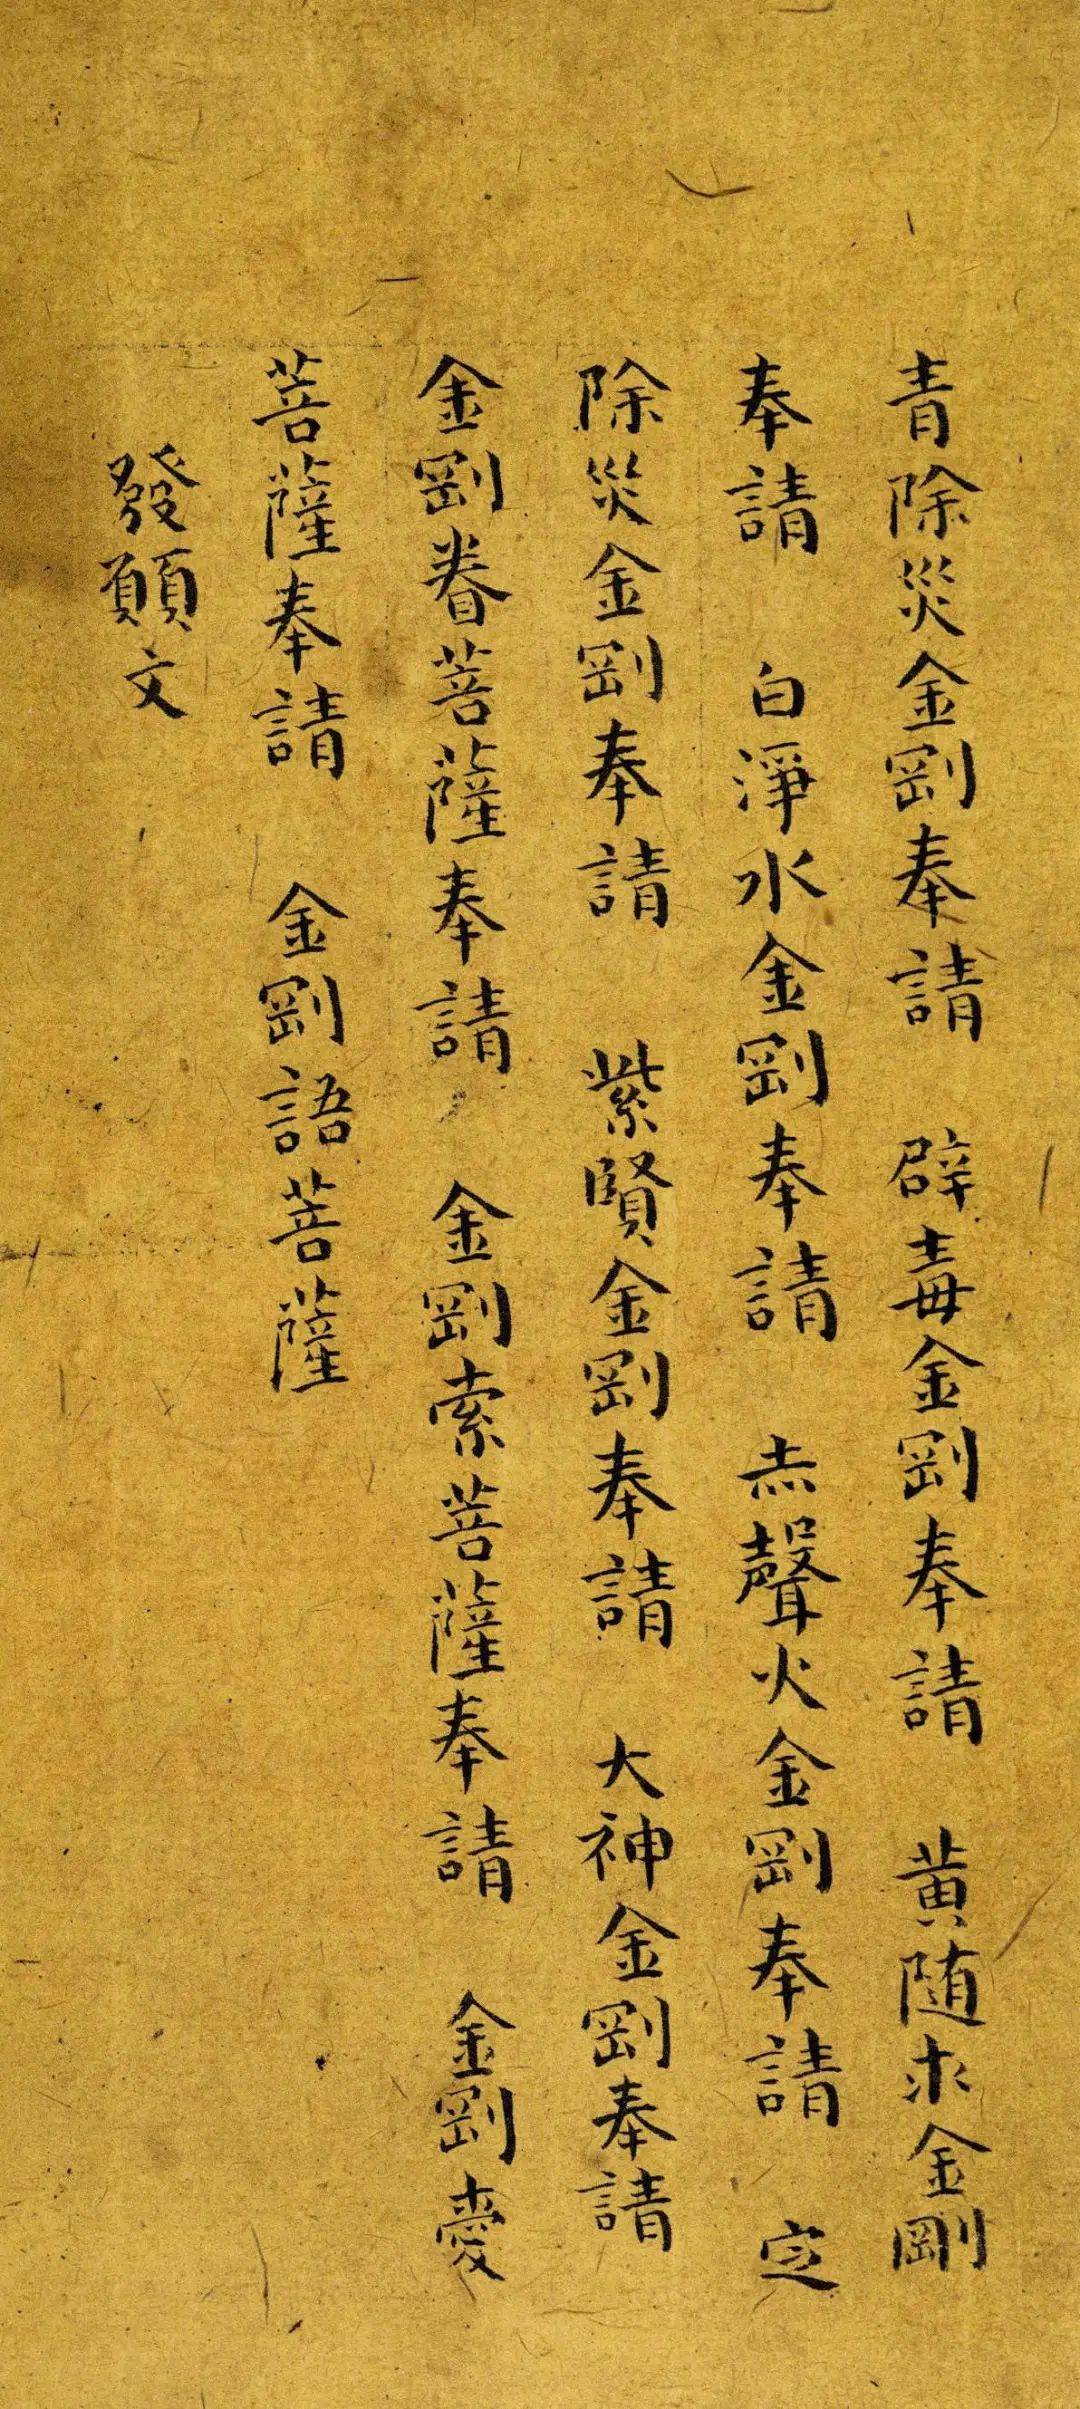 青除災金剛奉請　辟毒金剛奉請　黄随求金剛
奉請　白淨水金剛奉請　赤聲火金剛奉請　定
除災金剛奉請　紫賢金剛奉請　大神金剛奉請
金剛眷菩薩奉請　金剛索菩薩奉請　金剛愛
菩薩奉請　金剛語菩薩
發願文